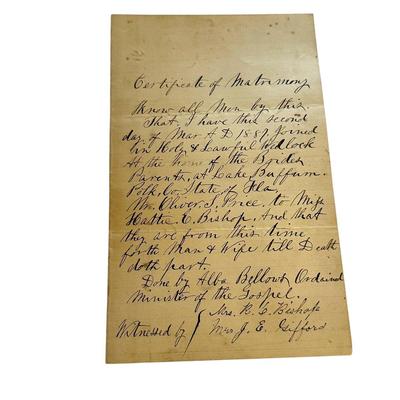 Certificate of Matrimony
Know all Men by this.
That I have this second
day of Mar A D 1889, Joined
in Holy & Lawful Wedlock
at the home of the Brides
Parents, at Lake Buffum.
Polk, Co, State of Fla.
Mr. Oliver. S. Price. to Miss
Hattie. C. Bishop. And that
they are from this time
forth Man & Wife till Death
doth part.
Done by Alba Bellows Ordained
Minister of the Gospel.
Witnessed by { Mrs. R. C. Bishop
Mrs J. E. Gifford